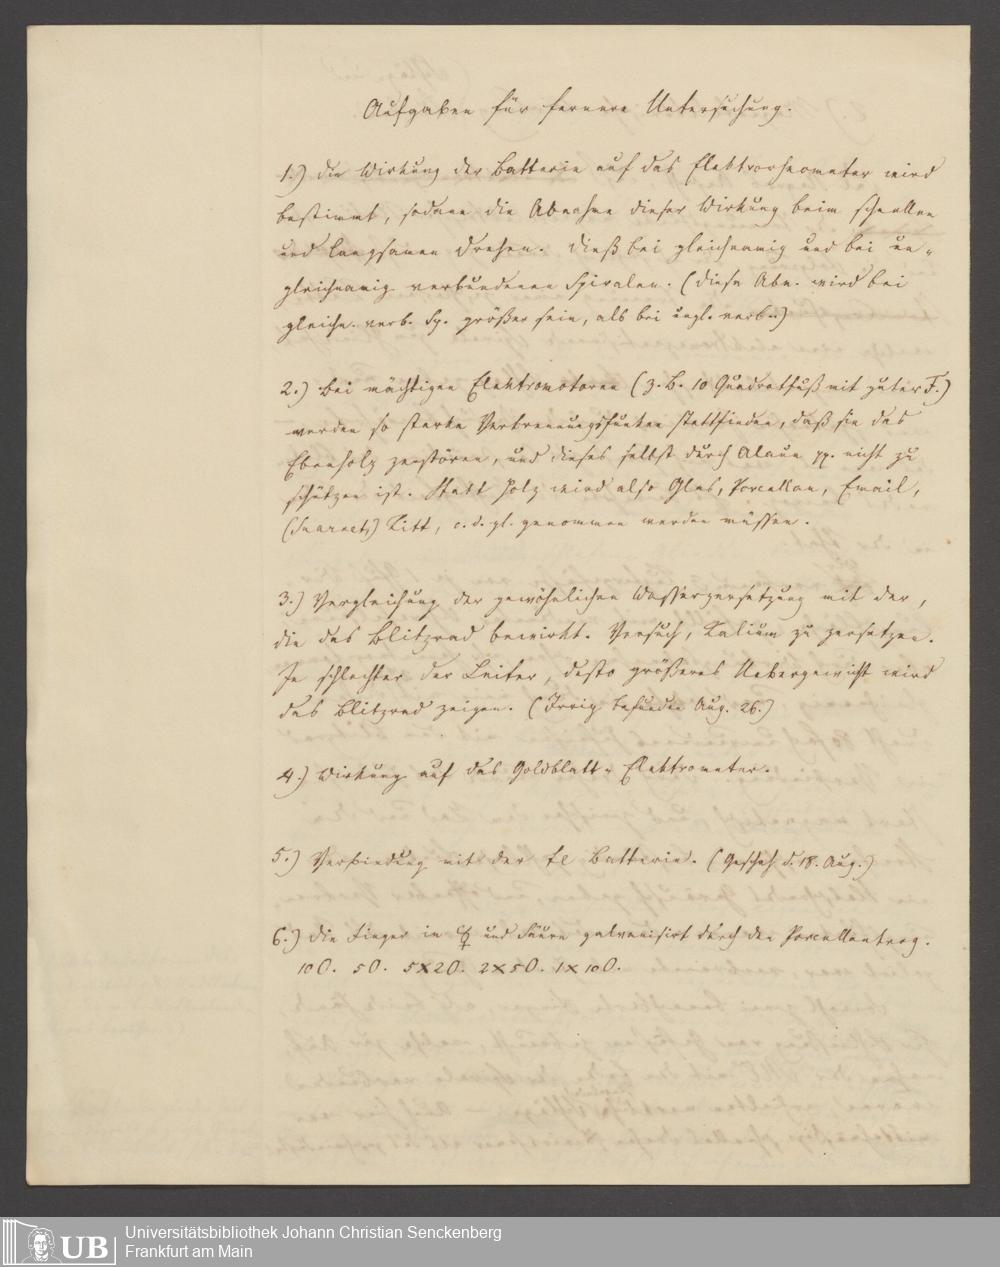 Aufgaben für fernere Untersuchung.
1.) Die Wirkung der Batterie auf das Elektrorheometer wird
bestimmt, sodann die Abnahme dieser Wirkung beim schnellen
und langsamen Drehen. Dieß bei gleichnamig und bei un-
gleichnamig verbundenen Spiralen. (Diese Abn. wird bei
gleichn. verb. Sp. größer sein, als bei ungl. verb..)
2.) Bei mächtigen Elektromotoren (z. B. 10 Quadratfuß mit guter F.)
werden so starke Verbrennungsfunken stattfinden, daß sie das
Ebenholz zerstören, und dieses selbst durch Alaun pp. nicht zu
schützen ist. Statt Holz wird also Glas, Porcellan, Email,
Kitt, o. d. gl. genommen werden müssen.
3.) Vergleichung der gewöhnlichen Wasserzersetzung mit der,
die das Blitzrad bewirkt. Versuch, Kalium zu zersetzen.
Je schlechter der Leiter, desto größeres Uebergewicht wird
das Blitzrad zeigen. (Irrig befunden Aug. 26.)
4.) Wirkung auf das Goldblatt-Elektrometer.
5.) Verbindung mit der El Batterie. (Geschah d. 18. Aug.)
6.) Die Finger in ☿ und Säure galvanisirt durch den Porcellantrog.
10 O. 5 O. 5 X 2 O. 2 X 5 O. 1 X 10 O.
UB
Universitätsbibliothek Johann Christian Senckenberg
Frankfurt am Main